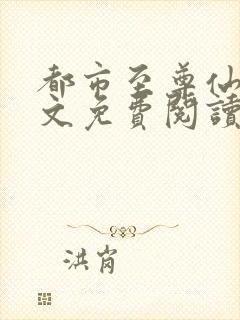 都市至尊仙
文免費閱讀
洪崗